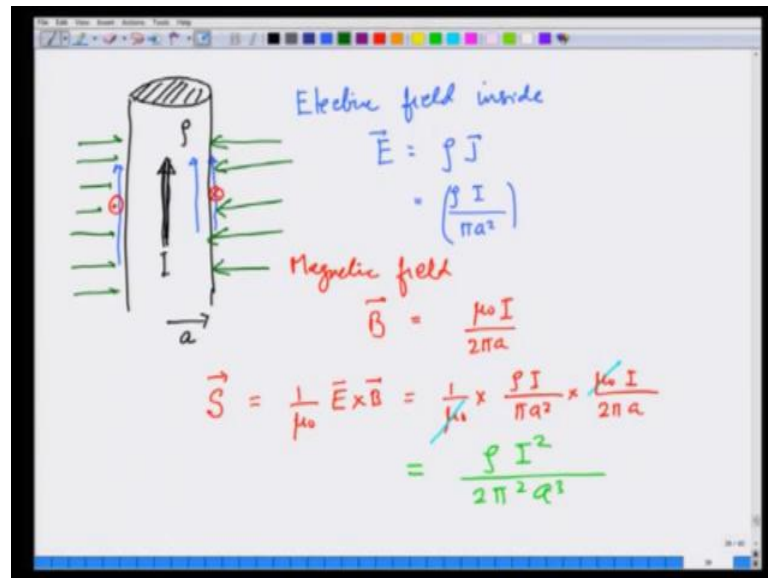 File Edit View Insert Actions Tools Help
Electric field inside
ρ
E⃗ = ρ J⃗
= (ρ I / πa²)
I
Magnetic field
a
B⃗ = μ₀ I / 2πa
S⃗ = 1/μ₀ E⃗ × B⃗ = 1/μ₀ × ρ I / πa² × μ₀ I / 2πa
= ρ I² / 2π² a³